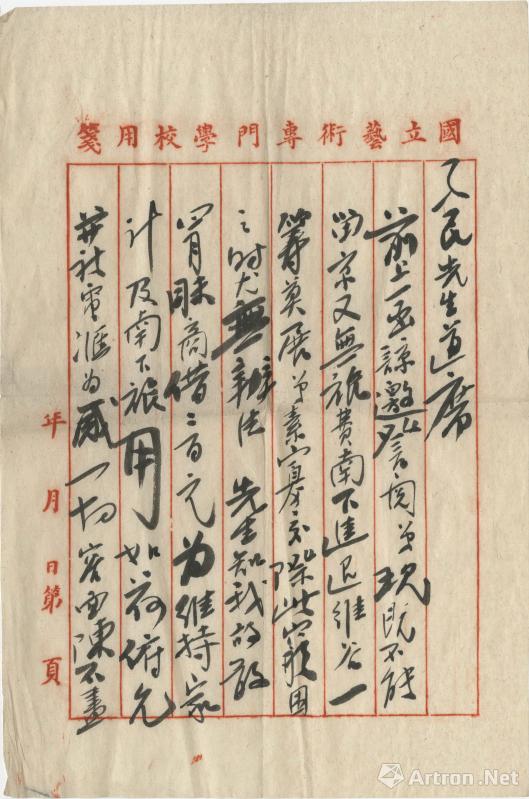 國立藝術專門學校用箋
民先生道席
前上一函諒邀詧閱弟現既不能
留京又無旅費南下進退維谷一
籌莫展弟素寡交際此窮困
之時尤無辦法 先生知我故敢
冒昧商借二百元为維持家
計及南下旅用如荷俯允
電匯为感一切容面陳不盡
年 月 日第 頁
Artron.Net